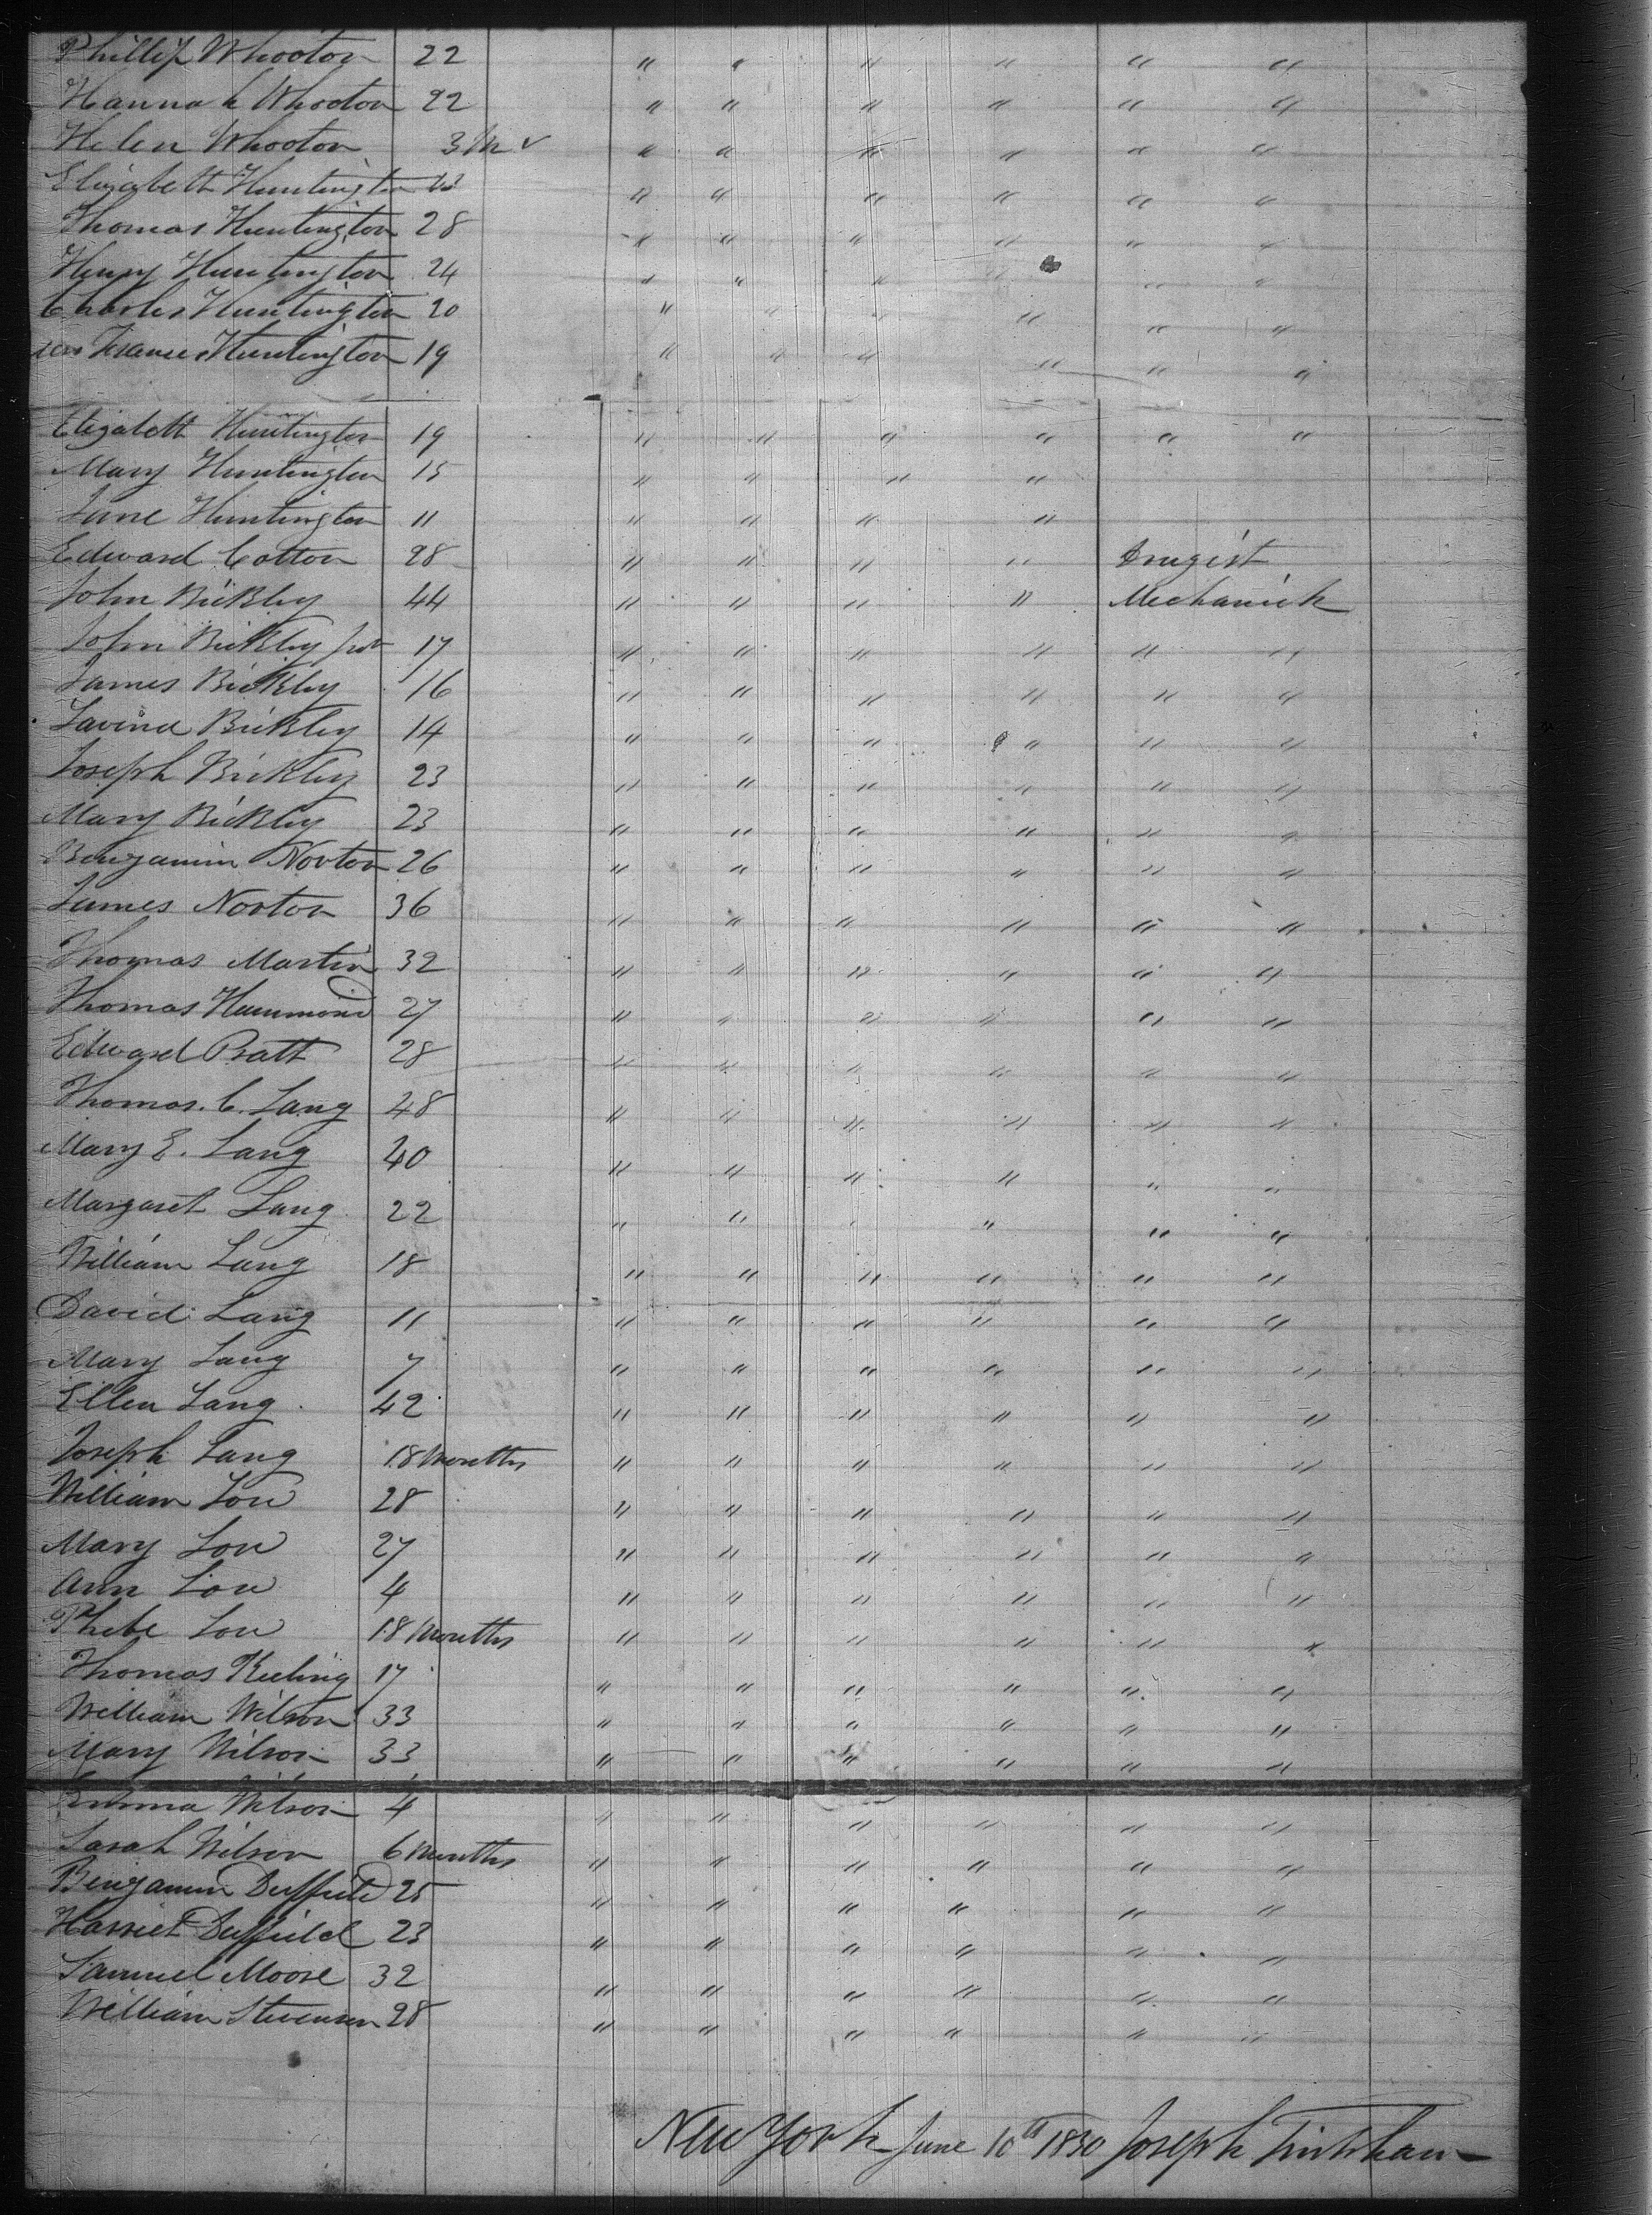 Phillip Whooton 22 " " " " " "
Hannah Whooton 22 " " " " " "
Helen Whooton 3 M " " " " " "
Elizabeth Huntington " " " " " "
Thomas Huntington 28 " " " " " "
Henry Huntington 24 " " " " "
Charles Huntington 20 " " " " " "
Frances Huntington 19 " " " " " "
Elizabeth Huntington 19 " " " " " "
Mary Huntington 15 " " " "
Jane Huntington 11 " " " "
Edward Cotton 28 " " " " Drugist
John Bickley 44 " " " " Mechanick
John Bickley 17 " " " " " "
James Bickley 16 " " " " " "
Lavina Bickley 14 " " " " " "
Joseph Bickley 23 " " " " " "
Mary Bickley 23 " " " " " "
Benjamin Norton 26 " " " " " "
James Norton 36 " " " " " "
Thomas Martin 32 " " " " " "
Thomas Hammond 27 " " " " " "
Edward Pratt 28 " " " " " "
Thomas. C. Lang 48 " " " " " "
Mary E. Lang 40 " " " " " "
Margaret Lang 22 " " " " " "
William Lang 18 " " " " " "
David Lang 11 " " " " " "
Mary Lang 7 " " " " " "
Ellen Lang 42 " " " " " "
Joseph Lang 18 Months " " " " " "
William Low 28 " " " " " "
Mary Low 27 " " " " " "
Ann Low 4 " " " " " "
Phebe Low 18 Months " " " " " "
Thomas Keeling 17 " " " " " "
William Wilson 33 " " " " " "
Mary Wilson 33 " " " " " "
Emma Wilson 4 " " " " " "
Sarah Wilson 6 Months " " " " " "
Benjamin Duffield 25 " " " " " "
Harriet Duffield 23 " " " " " "
Samuel Moore 32 " " " " " "
William Stevenson 28 " " " " " "
New York June 10th 1830 Joseph